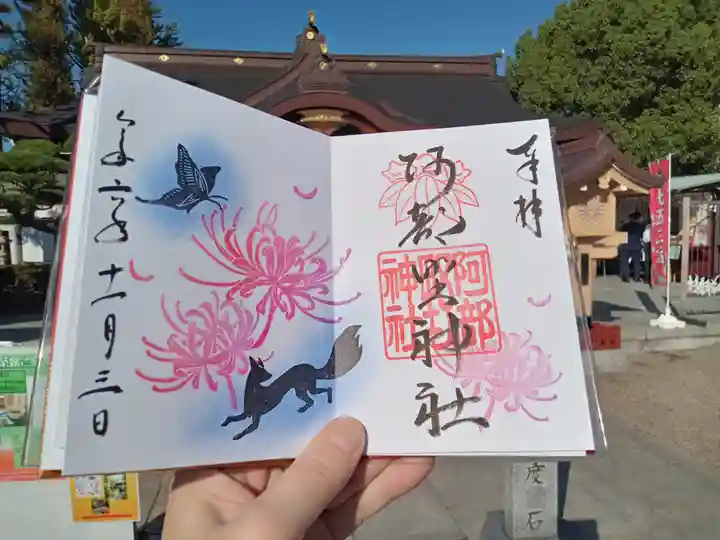 奉拝
阿部野神社
阿部野神社
令和六年十一月三日
七五三
度石